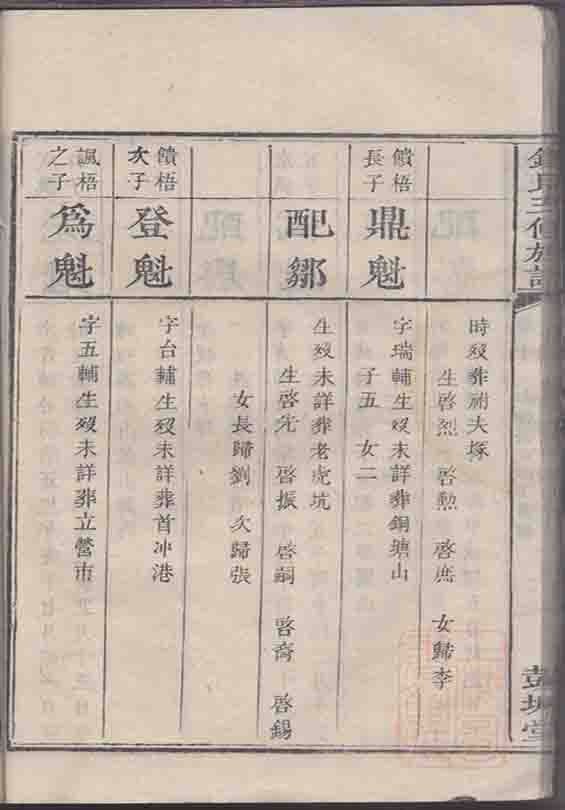 時歿葬祔夫塚
生啓烈 啓勲 啓庶 女歸李
饋梧
長子
鼎魁
字瑞輔生歿未詳葬銅塘山
子五 女二
配鄒
生歿未詳葬老虎坑
生啓先 啓振 啓嗣 啓裔 啓錫
女長歸劉 次歸張
饋梧
次子
登魁
字台輔生歿未詳葬首冲港
諷梧
之子
為魁
字五輔生歿未詳葬立營市